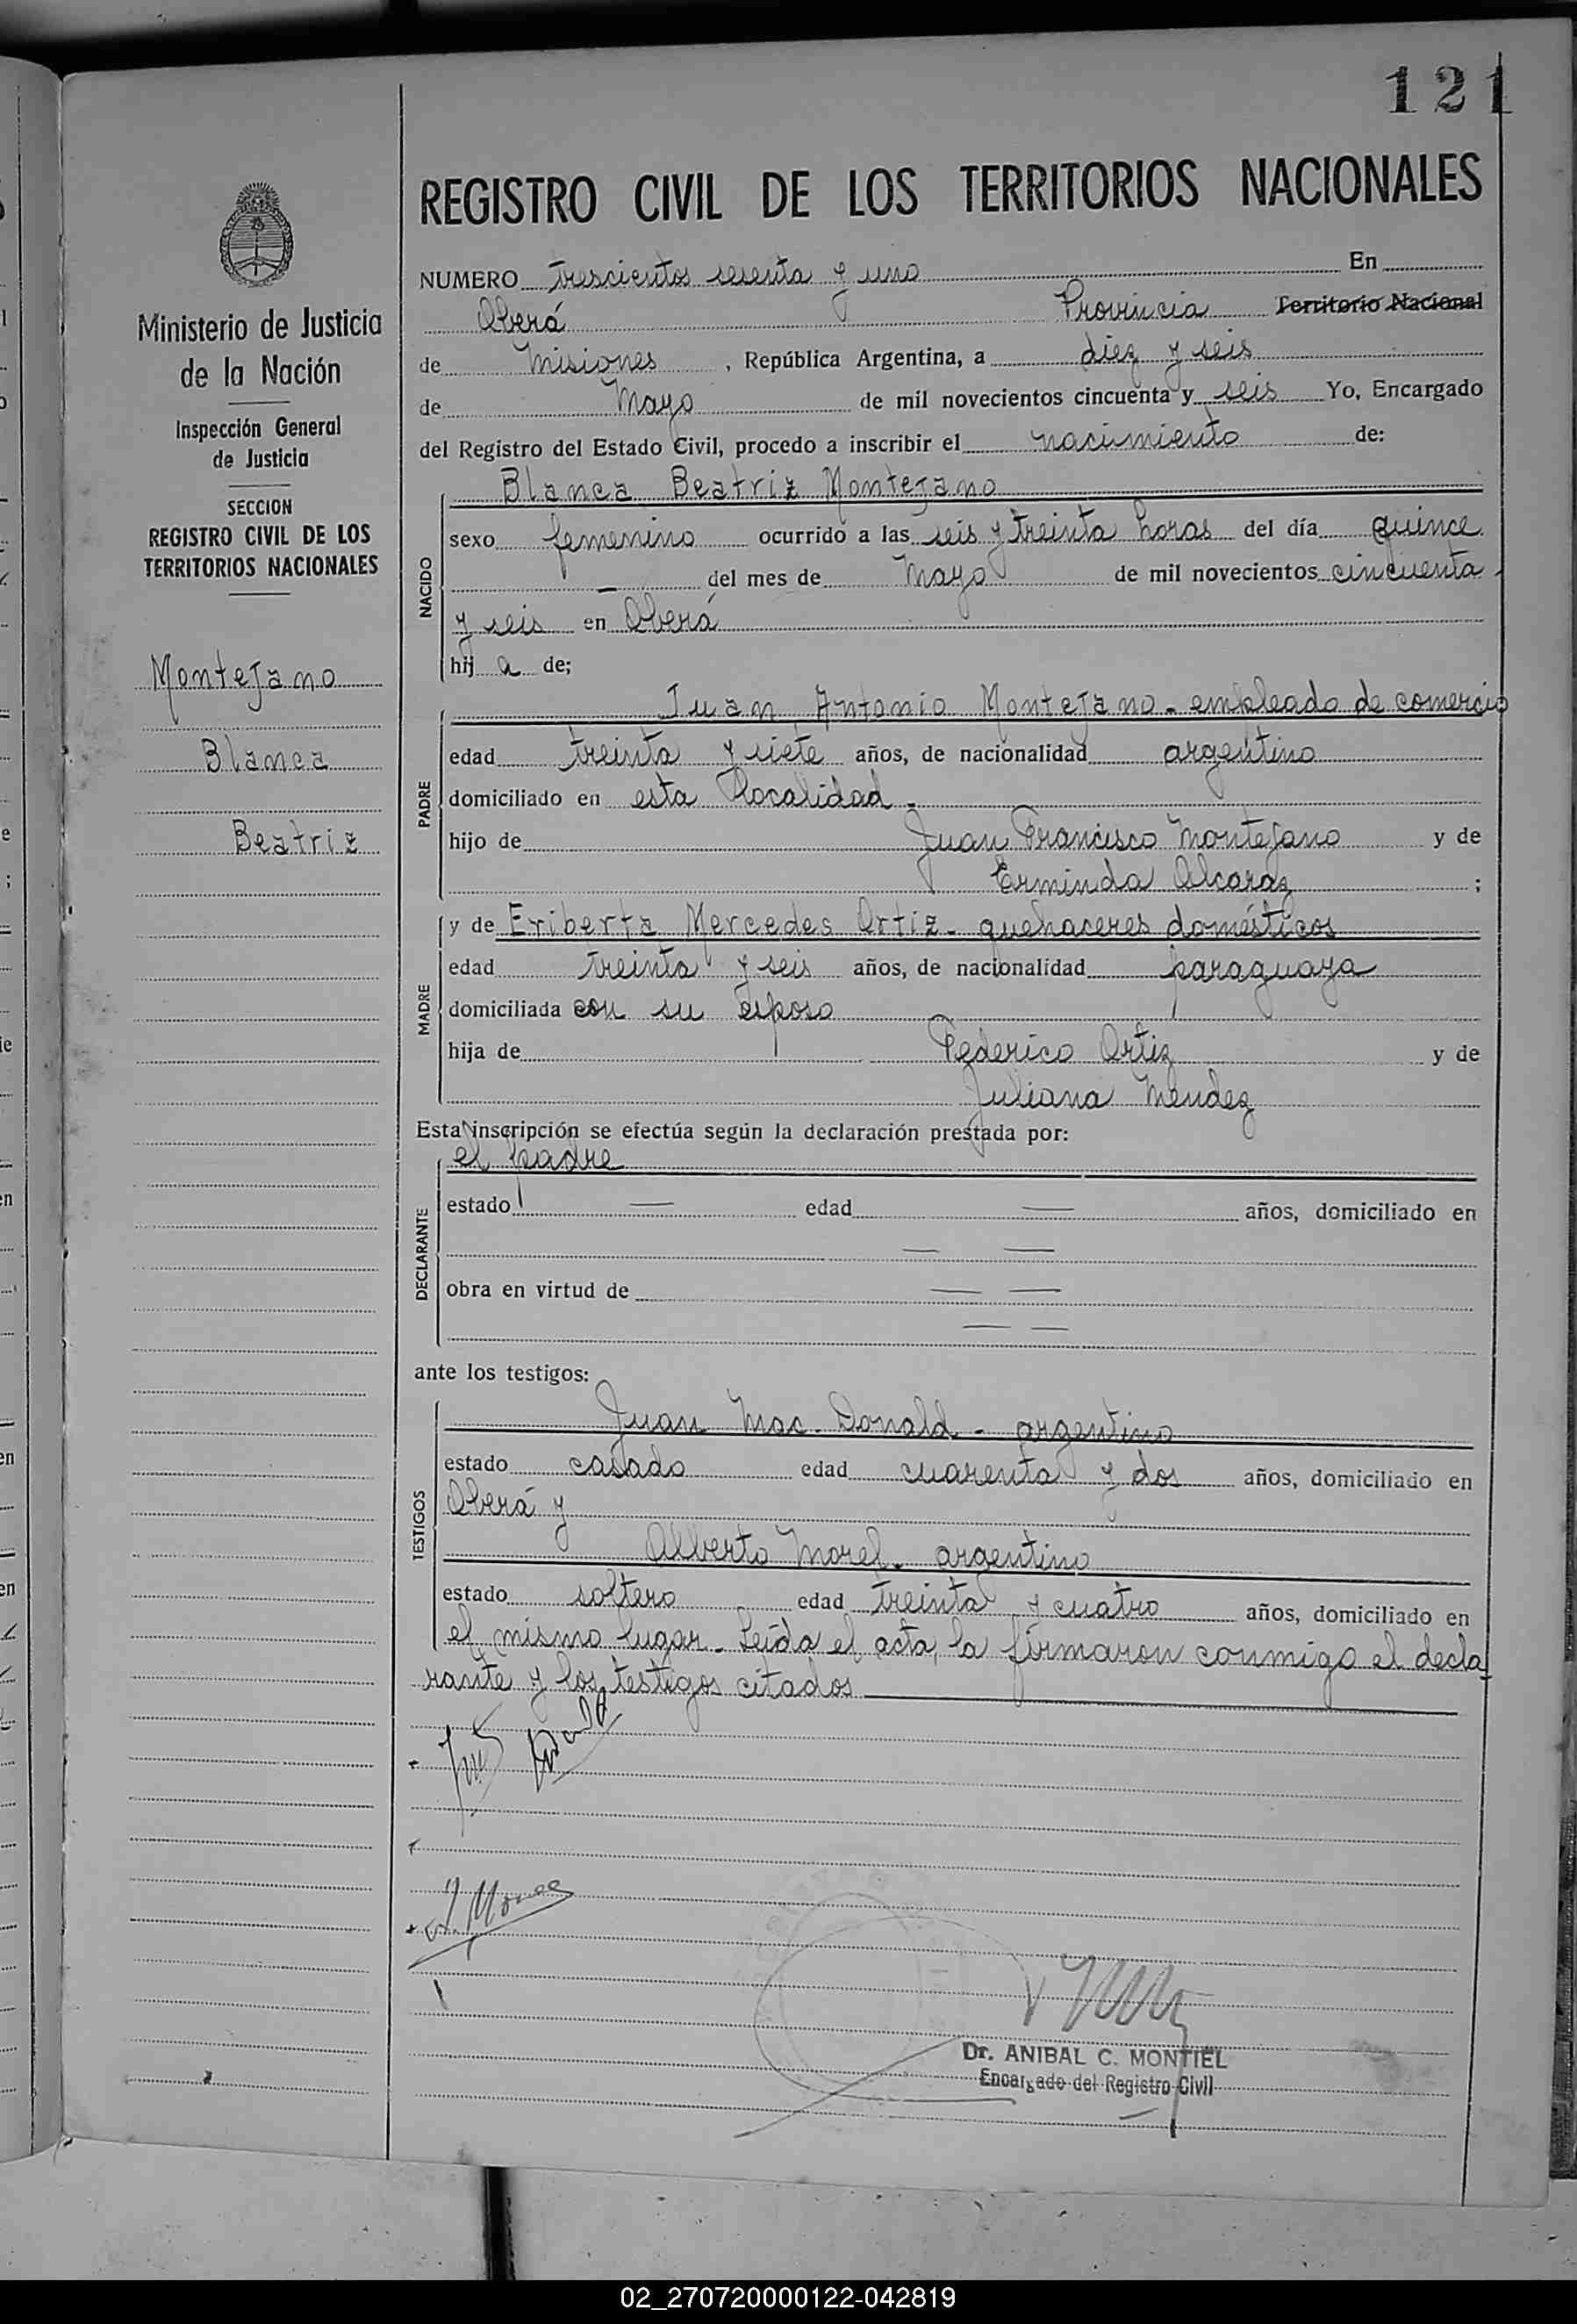 121
REGISTRO CIVIL DE LOS TERRITORIOS NACIONALES
Ministerio de Justicia
de la Nación
Inspección General
de Justicia
SECCION
REGISTRO CIVIL DE LOS
TERRITORIOS NACIONALES
Montejano
Blanca
Beatriz
NUMERO trescientos sesenta y uno En
Oberá Provincia Territorio Nacional
de Misiones, República Argentina, a diez y seis
de Mayo de mil novecientos cincuenta y seis Yo, Encargado
del Registro del Estado Civil, procedo a inscribir el nacimiento de:
NACIDO
Blanca Beatriz Montejano
sexo femenino ocurrido a las seis y treinta horas del día quince
— del mes de Mayo de mil novecientos cincuenta
y seis en Oberá
hij a de;
PADRE
Juan Antonio Montejano - empleado de comercio
edad treinta y siete años, de nacionalidad argentino
domiciliado en esta localidad -
hijo de Juan Francisco Montejano y de
Erminda Alcaraz ;
MADRE
y de Eriberta Mercedes Ortiz - quehaceres domésticos
edad treinta y seis años, de nacionalidad paraguaya
domiciliada con su esposo
hija de Federico Ortiz y de
Juliana Mendez
Esta inscripción se efectúa según la declaración prestada por:
DECLARANTE
el padre
estado — edad — años, domiciliado en
— —
obra en virtud de — —
— —
ante los testigos:
TESTIGOS
Juan Mac. Donald - argentino
estado casado edad cuarenta y dos años, domiciliado en
Oberá y
Alberto Morel - argentino
estado soltero edad treinta y cuatro años, domiciliado en
el mismo lugar - Leída el acta, la firmaron conmigo el decla
rante y los testigos citados
Dr. ANIBAL C. MONTIEL
Encargado del Registro Civil
02_270720000122-042819